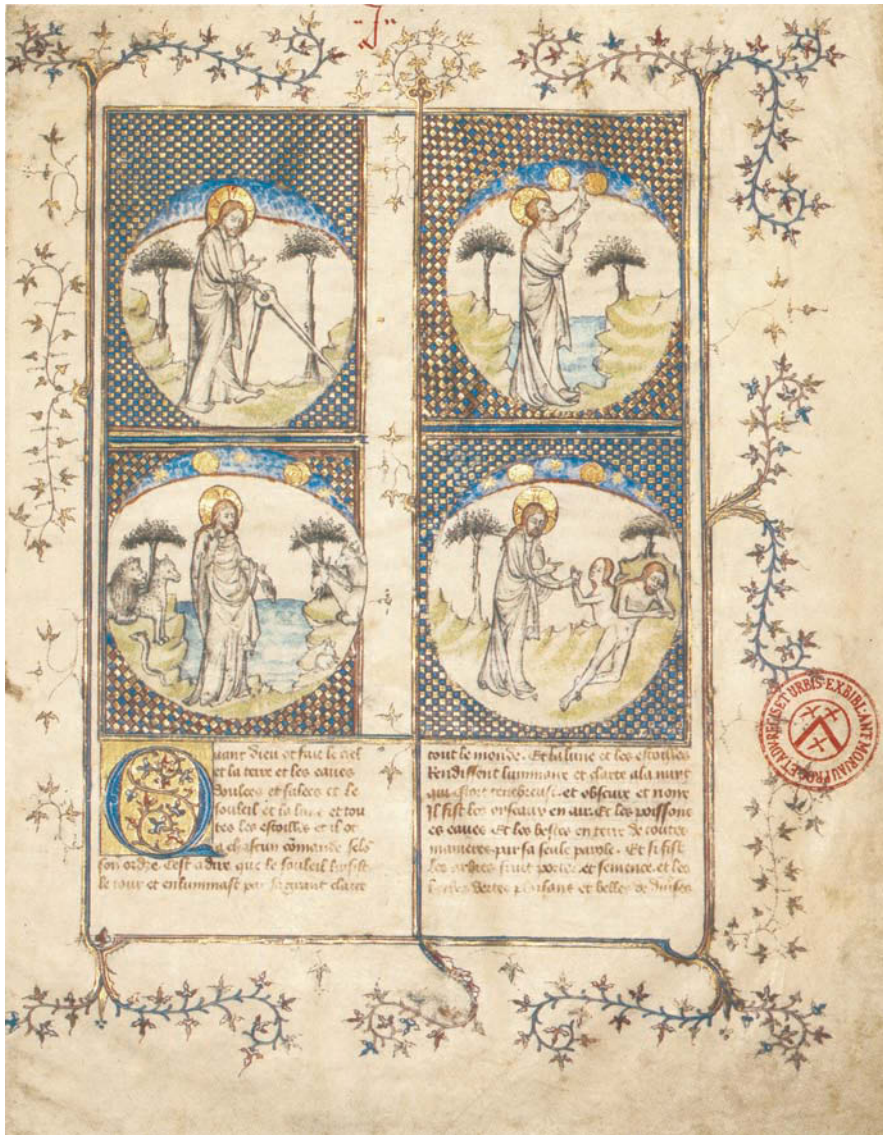 J
Quant dieu ot fait le ciel
et la terre et les eaues
doulces et salees et le
souleil et la lune et tou
tes les estoilles et il ot
a chascun cõmande sels
son ordre. Cest a dire que le souleil
le iour et enluminast par sa grant clarte
tout le monde. Et la lune et les estoilles
Rendissent luminaire et clarte a la nuyt
qui estoit tenebreuse. et obscure et noire
Il fist les oyseaux en air. Et les poissons
es eaues Et les bestes en terre de toutes
manieres par sa seule parole. Et si fist
les arbres fruit porter. et semence. et les
herbes vertes et belles de diuises
MORIAU PROC ET ADV REGIS ET URBIS EX BIBL ANT